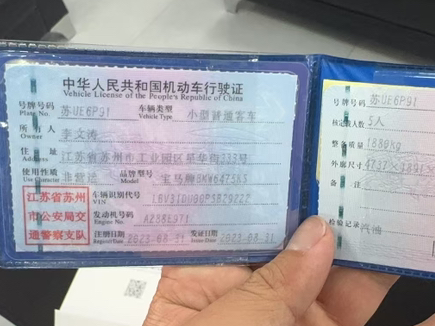 中华人民共和国机动车行驶证
Vehicle License of the People's Republic of China
号牌号码 苏UE6P91 车辆类型 小型普通客车
Plate No. Vehicle Type
所有人 李文涛
Owner
住址 江苏省苏州市工业园区星华街333号
Address
使用性质 非营运 品牌型号 宝马牌BMW6475KS
Use Character Model
江苏省苏州
市公安局交
通警察支队
车辆识别代号
VIN
发动机号码
Engine No.
注册日期 2023-08-31 发证日期 2023-08-31
Register Date Issue Date
号牌号码 苏UE6P91
核定载人数 5人
整备质量 1880kg
外廓尺寸
检验记录